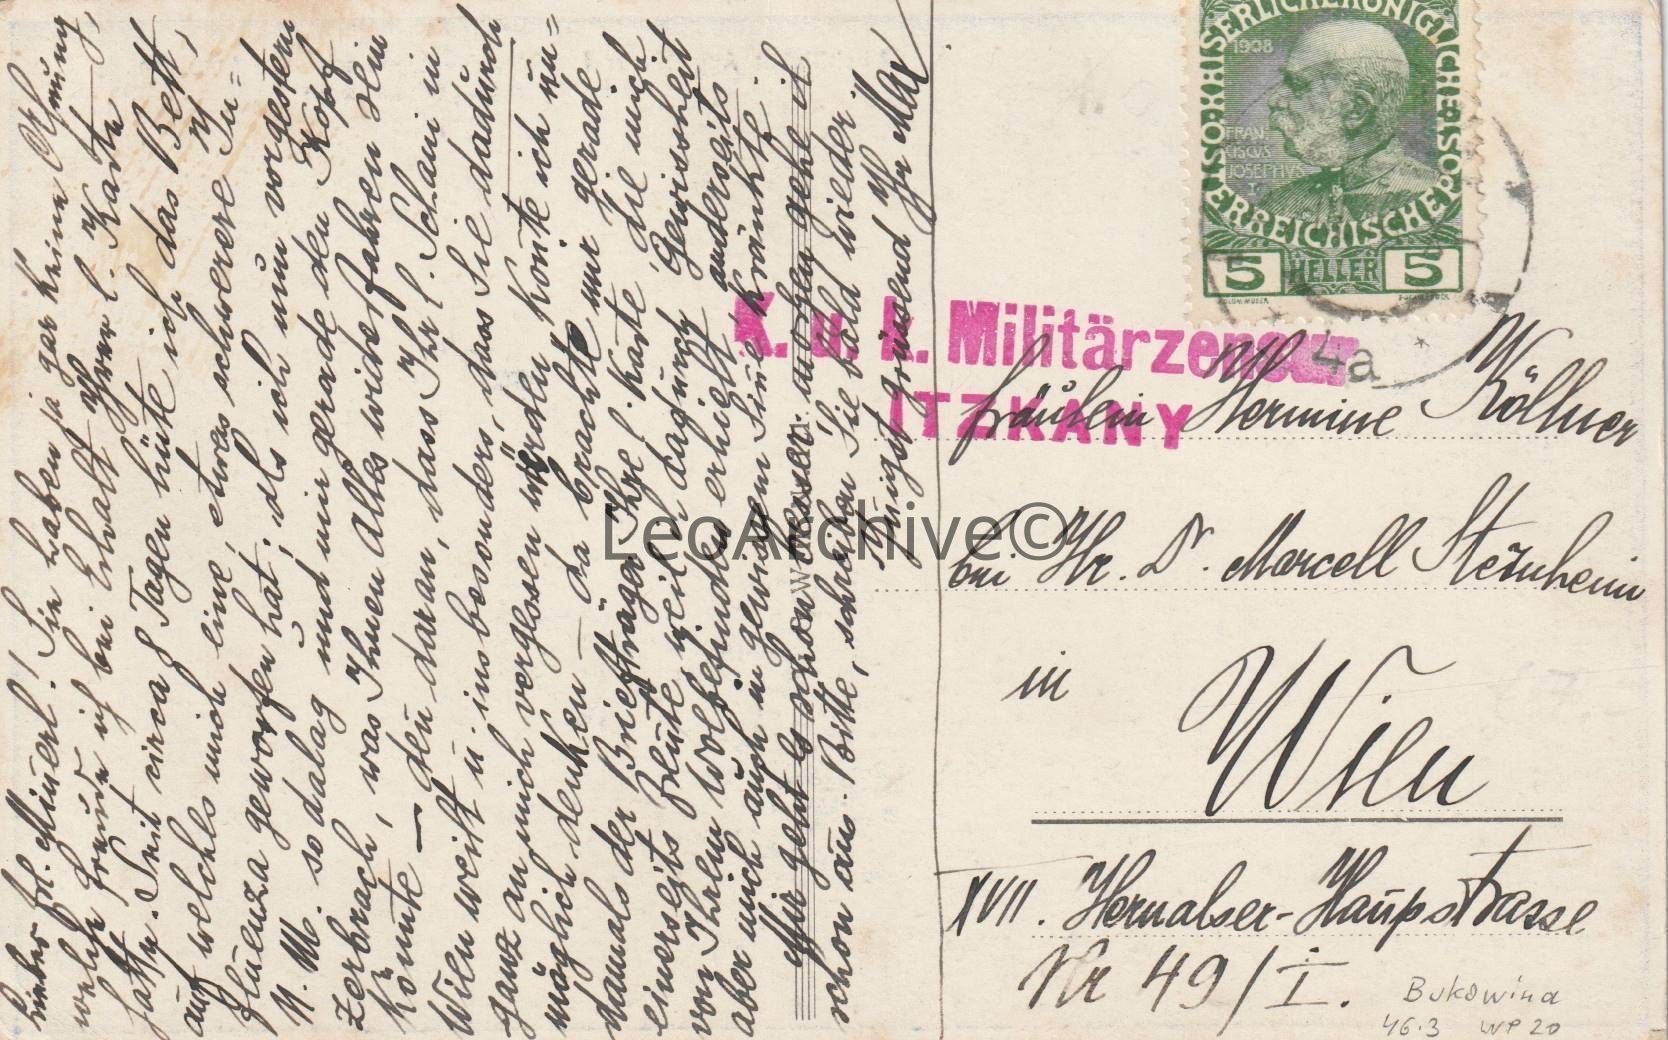 Liebes Frl. Minerl! Sie haben ja gar keine Ahnung,
welche Freude ich bei Erhalt Ihrer l. Karte
hatte. Seit circa 8 Tagen hüte ich das Bett,
auf welches mich eine, etwas schwerere In=
fluenza geworfen hat; als ich nun vorgestern
N. M. so dalag und mir gerade den Kopf
zerbrach, was Ihnen alles widerfahren sein
könnte — denn daran, dass Ihr l. Schani in
Wien weilt u. ins besonders, dass Sie dadurch
ganz an mich vergessen würden konnte ich un=
möglich denken — da brachte mir gerade
damals der Briefträger Ihre l. Karte die mich
einerseits freute weil ich dadurch Gewissheit
von Ihrem Wolbefinden erhielt, anderseits
aber mich auch in gewissem Sinne kränkte.
Mir geht es schon besser, morgen gehe ich
schon aus. Bitte, schreiben Sie bald wieder.
Innigst grüssend Ihr Max
1908
FRAN
CISCUS
JOSEPHUS
I.
KAISERLICHEKÖNIGLICHE
ÖSTERREICHISCHE POST
5 HELLER 5
4a
K. u. k. Militärzensur
ITZKANY
Fräulein Hermine Köllner
bei Hr. Dr. Marcell Sternheim
in
Wien
XVII. Hernalser-Haupstrasse
Nr 49/I.
Bukowina
46.3 WP 20
LeoArchive©